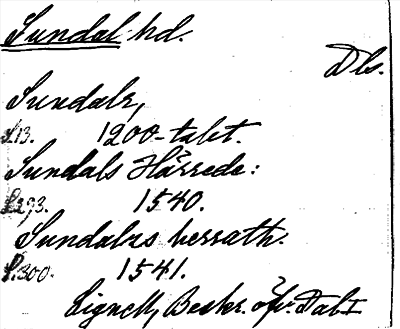 Sundal hd.
Dls.
Sundals,
S.13. 1200-talet.
Sundals Härrede:
S.293. 1540.
Sundalss herrath:
S.300. 1541.
Lignell, Beskr. öfv. Dal I